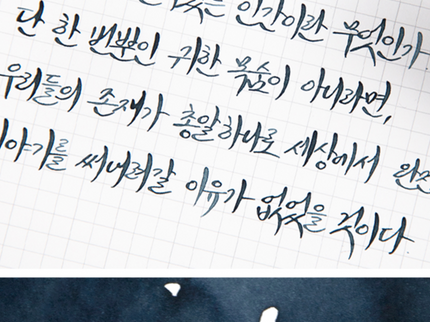 있는 인간이란 무엇인가
단 한 번뿐인 귀한 목숨이 아니라면,
우리들의 존재가 총알 하나로 세상에서 완전
이야기를 써내려갈 이유가 없었을 것이다